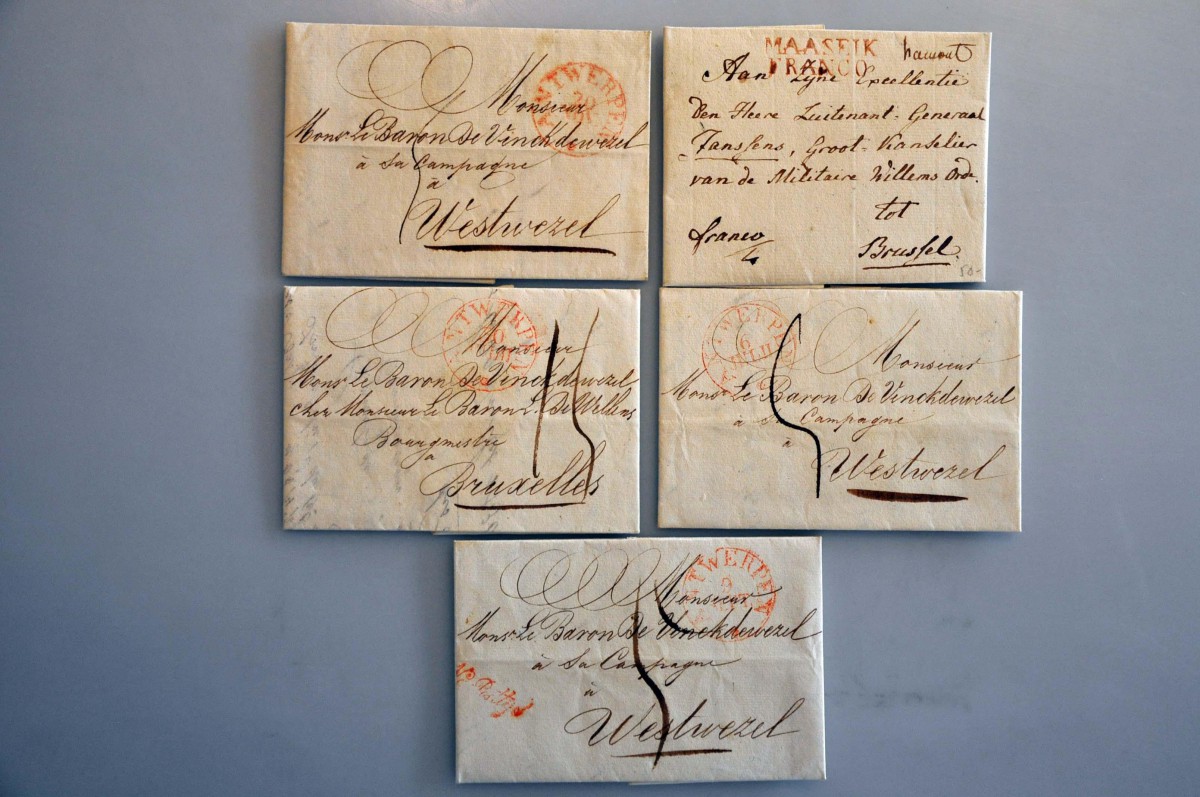 ANTWERPEN
20
Monsieur
Monsr Le Baron De Vinckdewezel
à Sa Campagne
à
Westwezel
MAASEIK
FRANCO
hamont
Aan Zyne Excellentie
Den Heere Luitenant-Generaal
Janssens, Groot-Kanselier
van de Militaire Willems Orde.
tot
Brussel.
franco
50-
ANTWERPEN
Monsieur
Monsr Le Baron De Vinckdewezel
chez Monsieur Le Baron L. De Wellens
Bourgmestre
à
Bruxelles
ANTWERPEN
6
JULIJ
Monsieur
Monsr Le Baron De Vinckdewezel
à Sa Campagne
à
Westwezel
ANTWERPEN
Monsieur
Monsr Le Baron De Vinckdewezel
à Sa Campagne
à
Westwezel